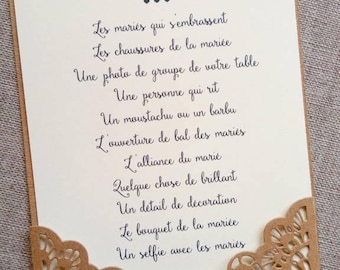 Les mariés qui s'embrassent
Les chaussures de la mariée
Une photo de groupe de votre table
Une personne qui rit
Un moustachu ou un barbu
L'ouverture de bal des mariés
L'alliance du marié
Quelque chose de brillant
Un détail de décoration
Le bouquet de la mariée
Un selfie avec les mariés